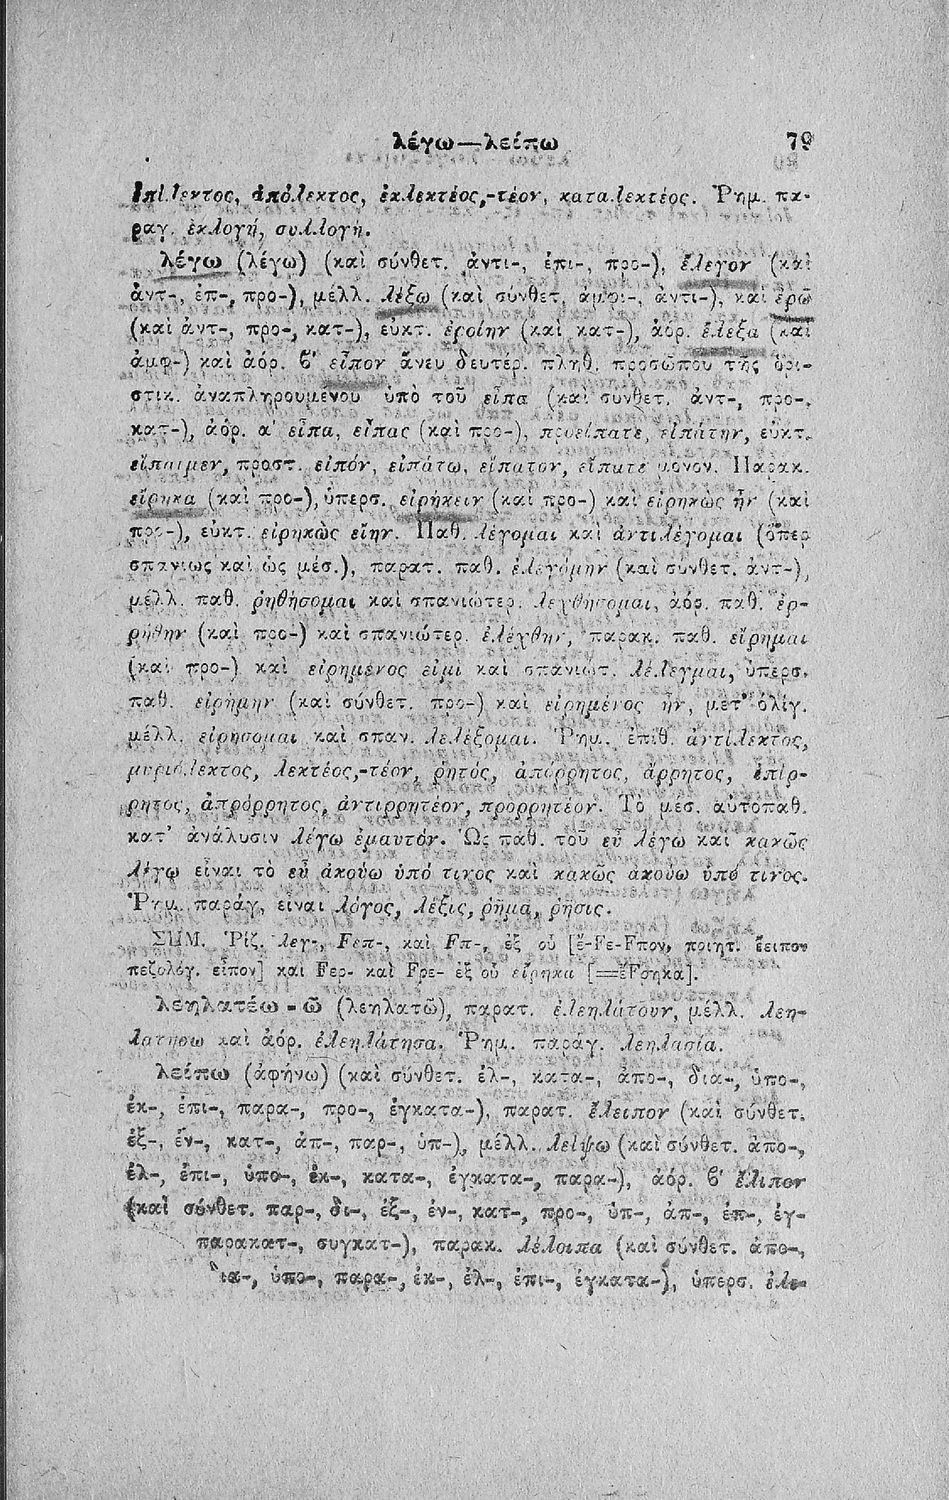 λέγω—λείπω 79
ἐπίλεκτος, ἀπόλεκτος, ἐκλεκτέος,-τέον, καταλεκτέος. Ῥημ. πα-
ραγ. ἐκλογή, συλλογή.
λέγω (λέγω) (καὶ σύνθετ. ἀντι-, ἐπι-, προ-), ἔλεγον (καὶ
ἀντ-, ἐπ-, προ-), μέλλ. λέξω (καὶ σύνθετ. ἀμφι-, ἀντι-), καὶ ἐρῶ
(καὶ ἀντ-, προ-, κατ-), εὐκτ. ἐροίην (καὶ κατ-), ἀόρ. ἔλεξα (καὶ
ἀμφ-) καὶ ἀόρ. β′ εἶπον ἄνευ δευτέρ. πληθ. προσώπου τῆς ὁρι-
στικ. ἀναπληρουμένου ὑπὸ τοῦ εἶπα (καὶ συνθετ. ἀντ-, προ-,
κατ-), ἀόρ. α′ εἶπα, εἶπας (καὶ προ-), προείπατε, εἰπάτην, εὐκτ.
εἴπαιμεν, προστ. εἰπόν, εἰπάτω, εἴπατον, εἴπατε μόνον. Παρακ.
εἴρηκα (καὶ προ-), ὑπερσ. εἰρήκειν (καὶ προ-) καὶ εἰρηκὼς ἦν (καὶ
προ-), εὐκτ. εἰρηκὼς εἴην. Παθ. λέγομαι καὶ ἀντιλέγομαι (ὅπερ
σπανίως καὶ ὡς μέσ.), παρατ. παθ. ἐλεγόμην (καὶ σύνθετ. ἀντ-),
μέλλ. παθ. ῥηθήσομαι καὶ σπανιώτερ. λεχθήσομαι, ἀόρ. παθ. ἐρ-
ρήθην (καὶ προ-) καὶ σπανιώτερ. ἐλέχθην, παρακ. παθ. εἴρημαι
(καὶ προ-) καὶ εἰρημένος εἰμὶ καὶ σπανιώτ. λέλεγμαι, ὑπερσ.
παθ. εἰρήμην (καὶ σύνθετ. προ-) καὶ εἰρημένος ἦν, μετ' ὀλίγ.
μέλλ. εἰρήσομαι καὶ σπαν. λελέξομαι. Ῥημ. ἐπίθ. ἀντίλεκτος,
μυριόλεκτος, λεκτέος,-τέον, ῥητός, ἀπόρρητος, ἄρρητος, ἐπίρ-
ρητος, ἀπρόρρητος, ἀντιρρητέον, προρρητέον. Τὸ μέσ. αὐτοπαθ.
κατ' ἀνάλυσιν λέγω ἐμαυτόν. Ὡς παθ. τοῦ εὖ λέγω καὶ κακῶς
λέγω εἶναι τὸ εὖ ἀκούω ὑπό τινος καὶ κακῶς ἀκούω ὑπό τινος.
Ῥημ. παράγ. εἶναι λόγος, λέξις, ῥῆμα, ῥῆσις.
ΣΗΜ. Ῥίζ. λεγ-, Fεπ-, καὶ Fπ-, ἐξ οὗ [ἔ-Fε-Fπον, ποιητ. ἔειπον
πεζολόγ. εἶπον] καὶ Fερ- καὶ Fρε- ἐξ οὗ εἴρηκα [=ἔFρηκα].
λεηλατέω-ῶ (λεηλατῶ), παρατ. ἐλεηλάτουν, μέλλ. λεη-
λατήσω καὶ ἀόρ. ἐλεηλάτησα. Ῥημ. παράγ. λεηλασία.
λείπω (ἀφήνω) (καὶ σύνθετ. ἐλ-, κατα-, ἀπο-, δια-, ὑπο-,
ἐκ-, ἐπι-, παρα-, προ-, ἐγκατα-), παρατ. ἔλειπον (καὶ σύνθετ.
ἐξ-, ἐν-, κατ-, ἀπ-, παρ-, ὑπ-), μέλλ. λείψω (καὶ σύνθετ. ἀπο-,
ἐλ-, ἐπι-, ὑπο-, ἐκ-, κατα-, ἐγκατα-, παρα-), ἀόρ. β′ ἔλιπον
(καὶ σύνθετ. παρ-, δι-, ἐξ-, ἐν-, κατ-, προ-, ὑπ-, ἀπ-, ἐπ-, ἐγ-
παρακατ-, συγκατ-), παρακ. λέλοιπα (καὶ σύνθετ. ἀπο-,
ια-, ὑπο-, παρα-, ἐκ-, ἐλ-, ἐπι-, ἐγκατα-), ὑπερσ. ἐλε-